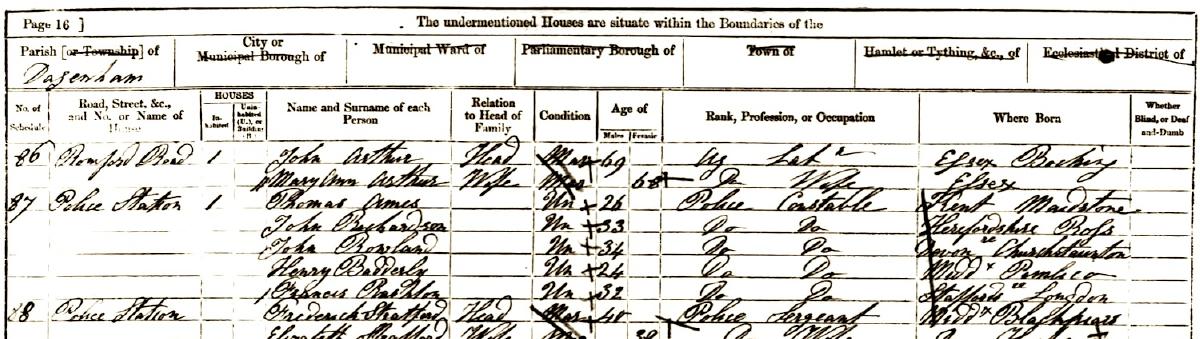 Page 16 ] The undermentioned Houses are situate within the Boundaries of the
Parish [or Township] of City or Municipal Borough of Municipal Ward of Parliamentary Borough of Town of Hamlet or Tything, &c., of Ecclesiastical District of
Dagenham
No. of Schedule Road, Street, &c., and No. or Name of House HOUSES Inhabited Uninhabited (U.), or Building (B.) Name and Surname of each Person Relation to Head of Family Condition Age of Males Females Rank, Profession, or Occupation Where Born Whether Blind, or Deaf-and-Dumb
86 Romford Road 1 John Arthur Head Mar 69 Ag Labr Essex Bocking
Mary Ann Arthur Wife Mar 68 Do Wife Essex
87 Police Station 1 Thomas Ames Un 26 Police Constable Kent Maidstone
John Richardson Un 33 Do Do Herefordshire
John Rowland Un 34 Do Do Devonre
Henry Badderly Un 24 Do Do Middx Pimlico
Francis Rushton Un 32 Do Do Staffordsre Longdon
88 Police Station Frederick Head Mar 40 Police Sergeant Middx
Elizabeth Wife 38 Wife